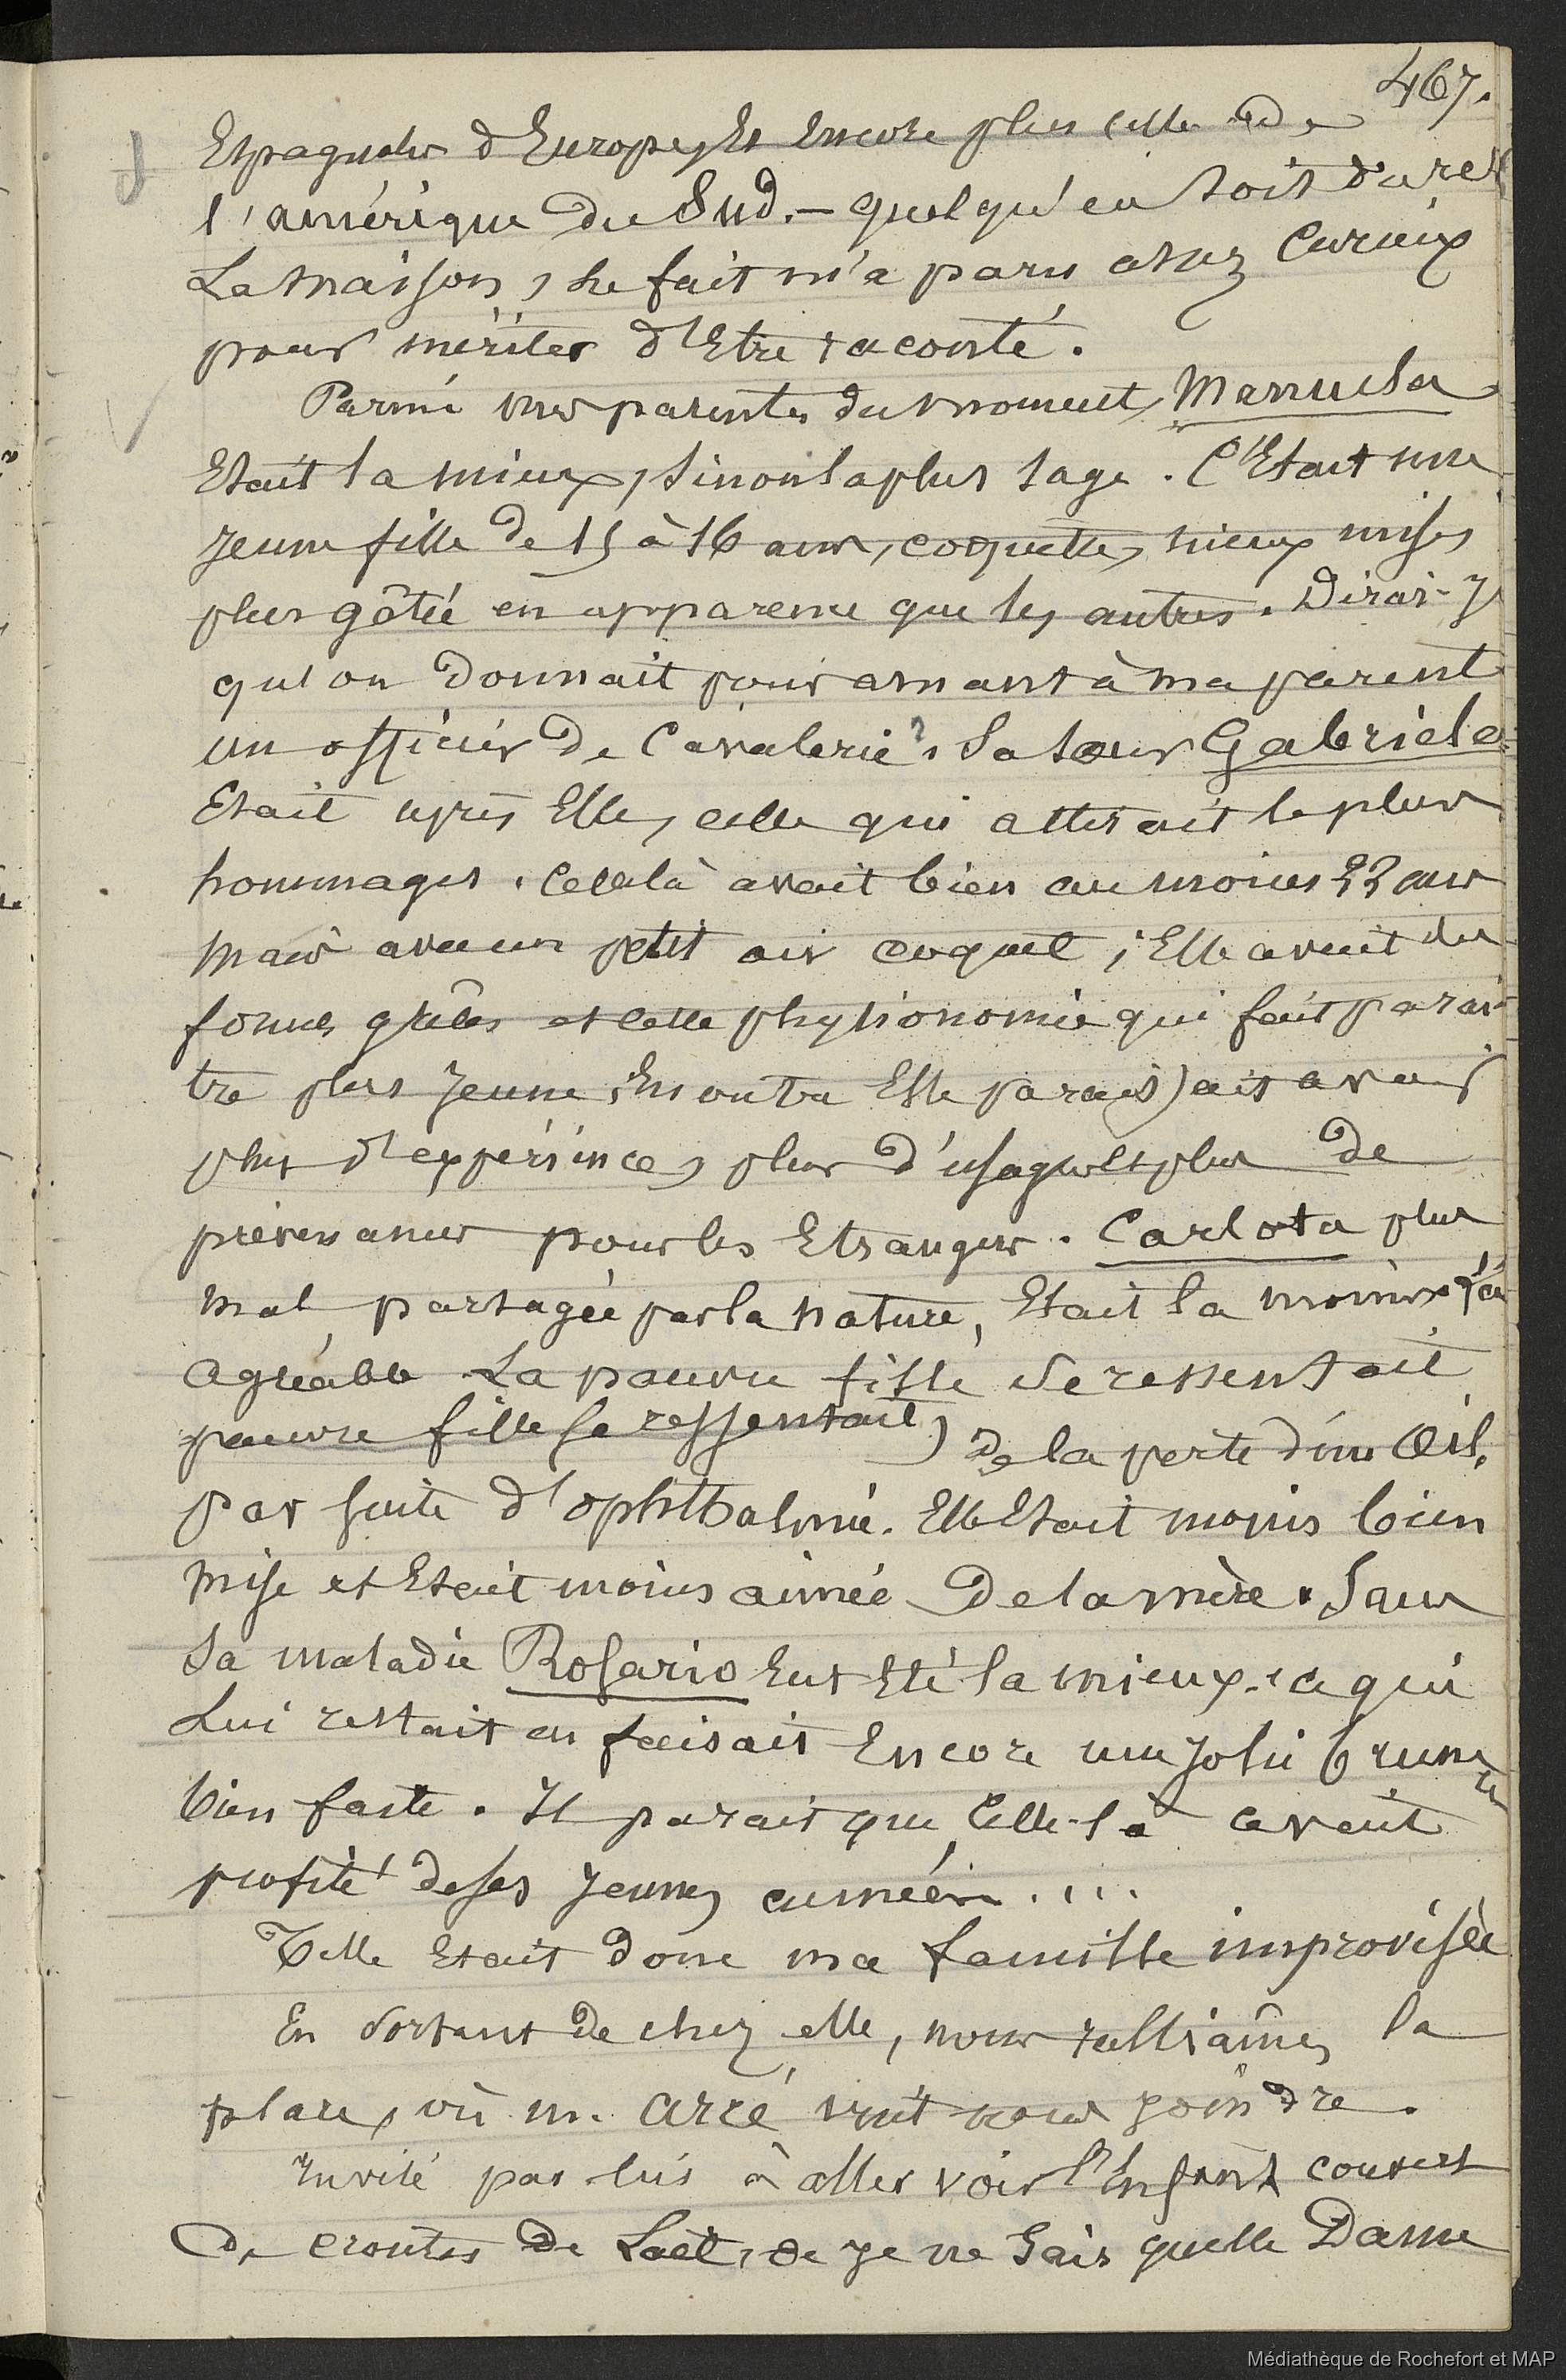 467.
Espagnoles d'Europe, Et Encore plus celle de
l'amérique du Sud. — quel qu'en soit du reste
La maison, Le fait m'a paru assez Curieux
pour mériter d'Etre raconté.
Parmi mes parentes du moment, Manuela
Etait la mieux, sinon la plus sage. C'Etait une
jeune fille de 15 à 16 ans, coquette, mieux mise,
plus gâtée en apparence que les autres. Dirai-je
qu'on Donnait pour amant à ma parente
un officier de Cavalerie? Sa sœur Gabriela
Etait après Elle, celle qui attirait le plus
hommages. Celle là avait bien au moins 22 ans
mais avec un petit air coquet; Elle avait des
formes grêles et cette physionomie qui fait parai-
tre plus jeune. En outre Elle paraissait avoir
plus d'expérience, plus d'usage et plus de
prévenances pour les Etrangers. Carlota plus
mal partagée par la nature, Etait la moins
agréable La pauvre fille se ressentait
pauvre fille se ressentait) De la perte d'un Œil,
par suite d'ophthalmie. Elle Etait moins bien
mise et Etait moins aimée De la mère. Sans
sa maladie Rosario Eut Eté la mieux. ce qui
Lui restait en faisait Encore une jolie brune
bien faite. Il parait que Celle-là avait
profité de ses jeunes années....
Telle Etait donc ma famille improvisée
En sortant de chez elle, nous ralliâmes la
place, où m. Arcé vint nous joindre.
Invité par lui à aller voir l'Enfant couvert
De croutes de Lait, de je ne Sais quelle Dame
Médiathèque de Rochefort et MAP